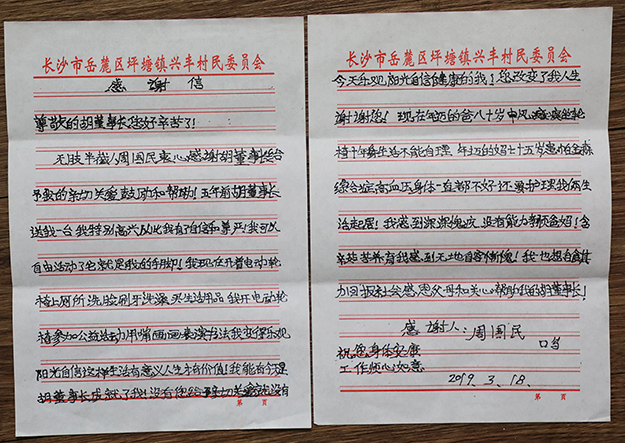 长沙市岳麓区坪塘镇兴丰村民委员会
感谢信
尊敬的胡董事长您好辛苦了!
无肢半截人周国民衷心感谢胡董事长给
予我的亲切关爱鼓励和帮助!五年前胡董事长
送我一台我特别高兴从此我有了自信和尊严!我可以
自由活动了它就是我的手脚!我现在开着电动轮
椅上厕所洗脸刷牙洗澡买生活用品我开电动轮
椅参加公益活动用嘴画画表演书法我变得乐观
阳光自信这样生活有意义人生才有价值!我能有今天是
胡董事长成就了我!没有您给予的关爱就没有
第 页
长沙市岳麓区坪塘镇兴丰村民委员会
今天乐观阳光自信健康的我!您改变了我人生
谢谢您!现在年迈的爸八十岁中风瘫痪坐轮
椅十年生活不能自理年迈的妈七十五岁患帕金森
综合症高血压身体一直都不好还要护理我俩生
活起居!我感到深深愧疚没有能力孝敬爸妈!含
辛茹苦养育我感到无地自容惭愧!我也想自食其
力回报社会感恩父母和关心帮助我的胡董事长!
感谢人:周国民
口书
祝您身体安康
工作顺心如意
2019.3.18.
第 页